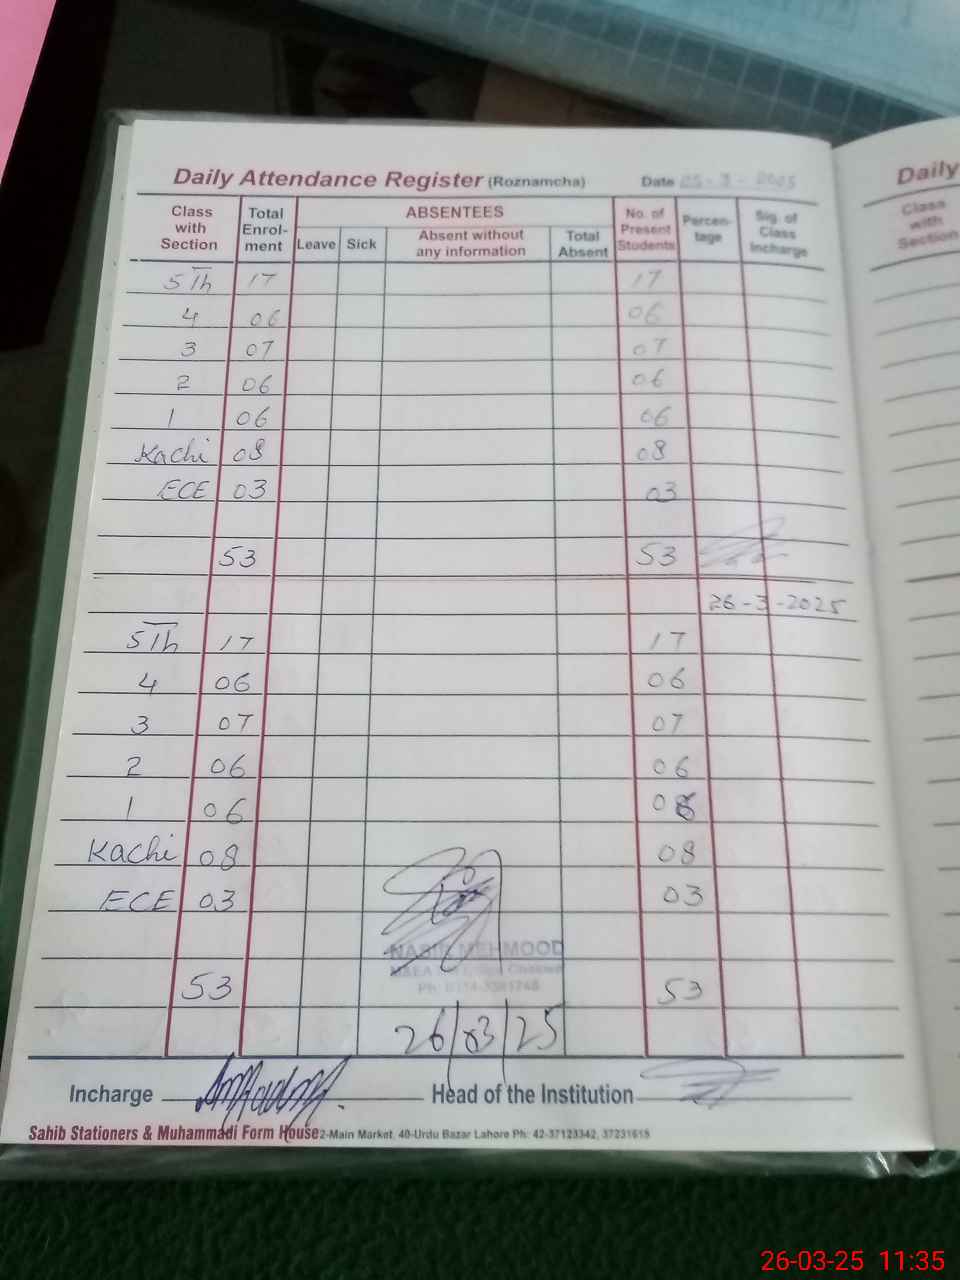 Daily Attendance Register (Roznamcha) Date 25-3-2025
Class with Section Total Enrol-ment ABSENTEES No. of Present Students Percen-tage Sig. of Class Incharge
Leave Sick Absent without any information Total Absent
5Th 17 17
4 06 06
3 07 07
2 06 06
1 06 06
Kachi 08 08
ECE 03 03
53 53
26-3-2025
5Th 17 17
4 06 06
3 07 07
2 06 06
1 06 06
Kachi 08 08
ECE 03 03
MEHMOOD
53 53
26/03/25
Incharge Head of the Institution
Sahib Stationers & Muhammadi Form House 2-Main Market, 40-Urdu Bazar Lahore Ph: 42-37123342, 37231615
Daily
Class
with
Section
26-03-25 11:35